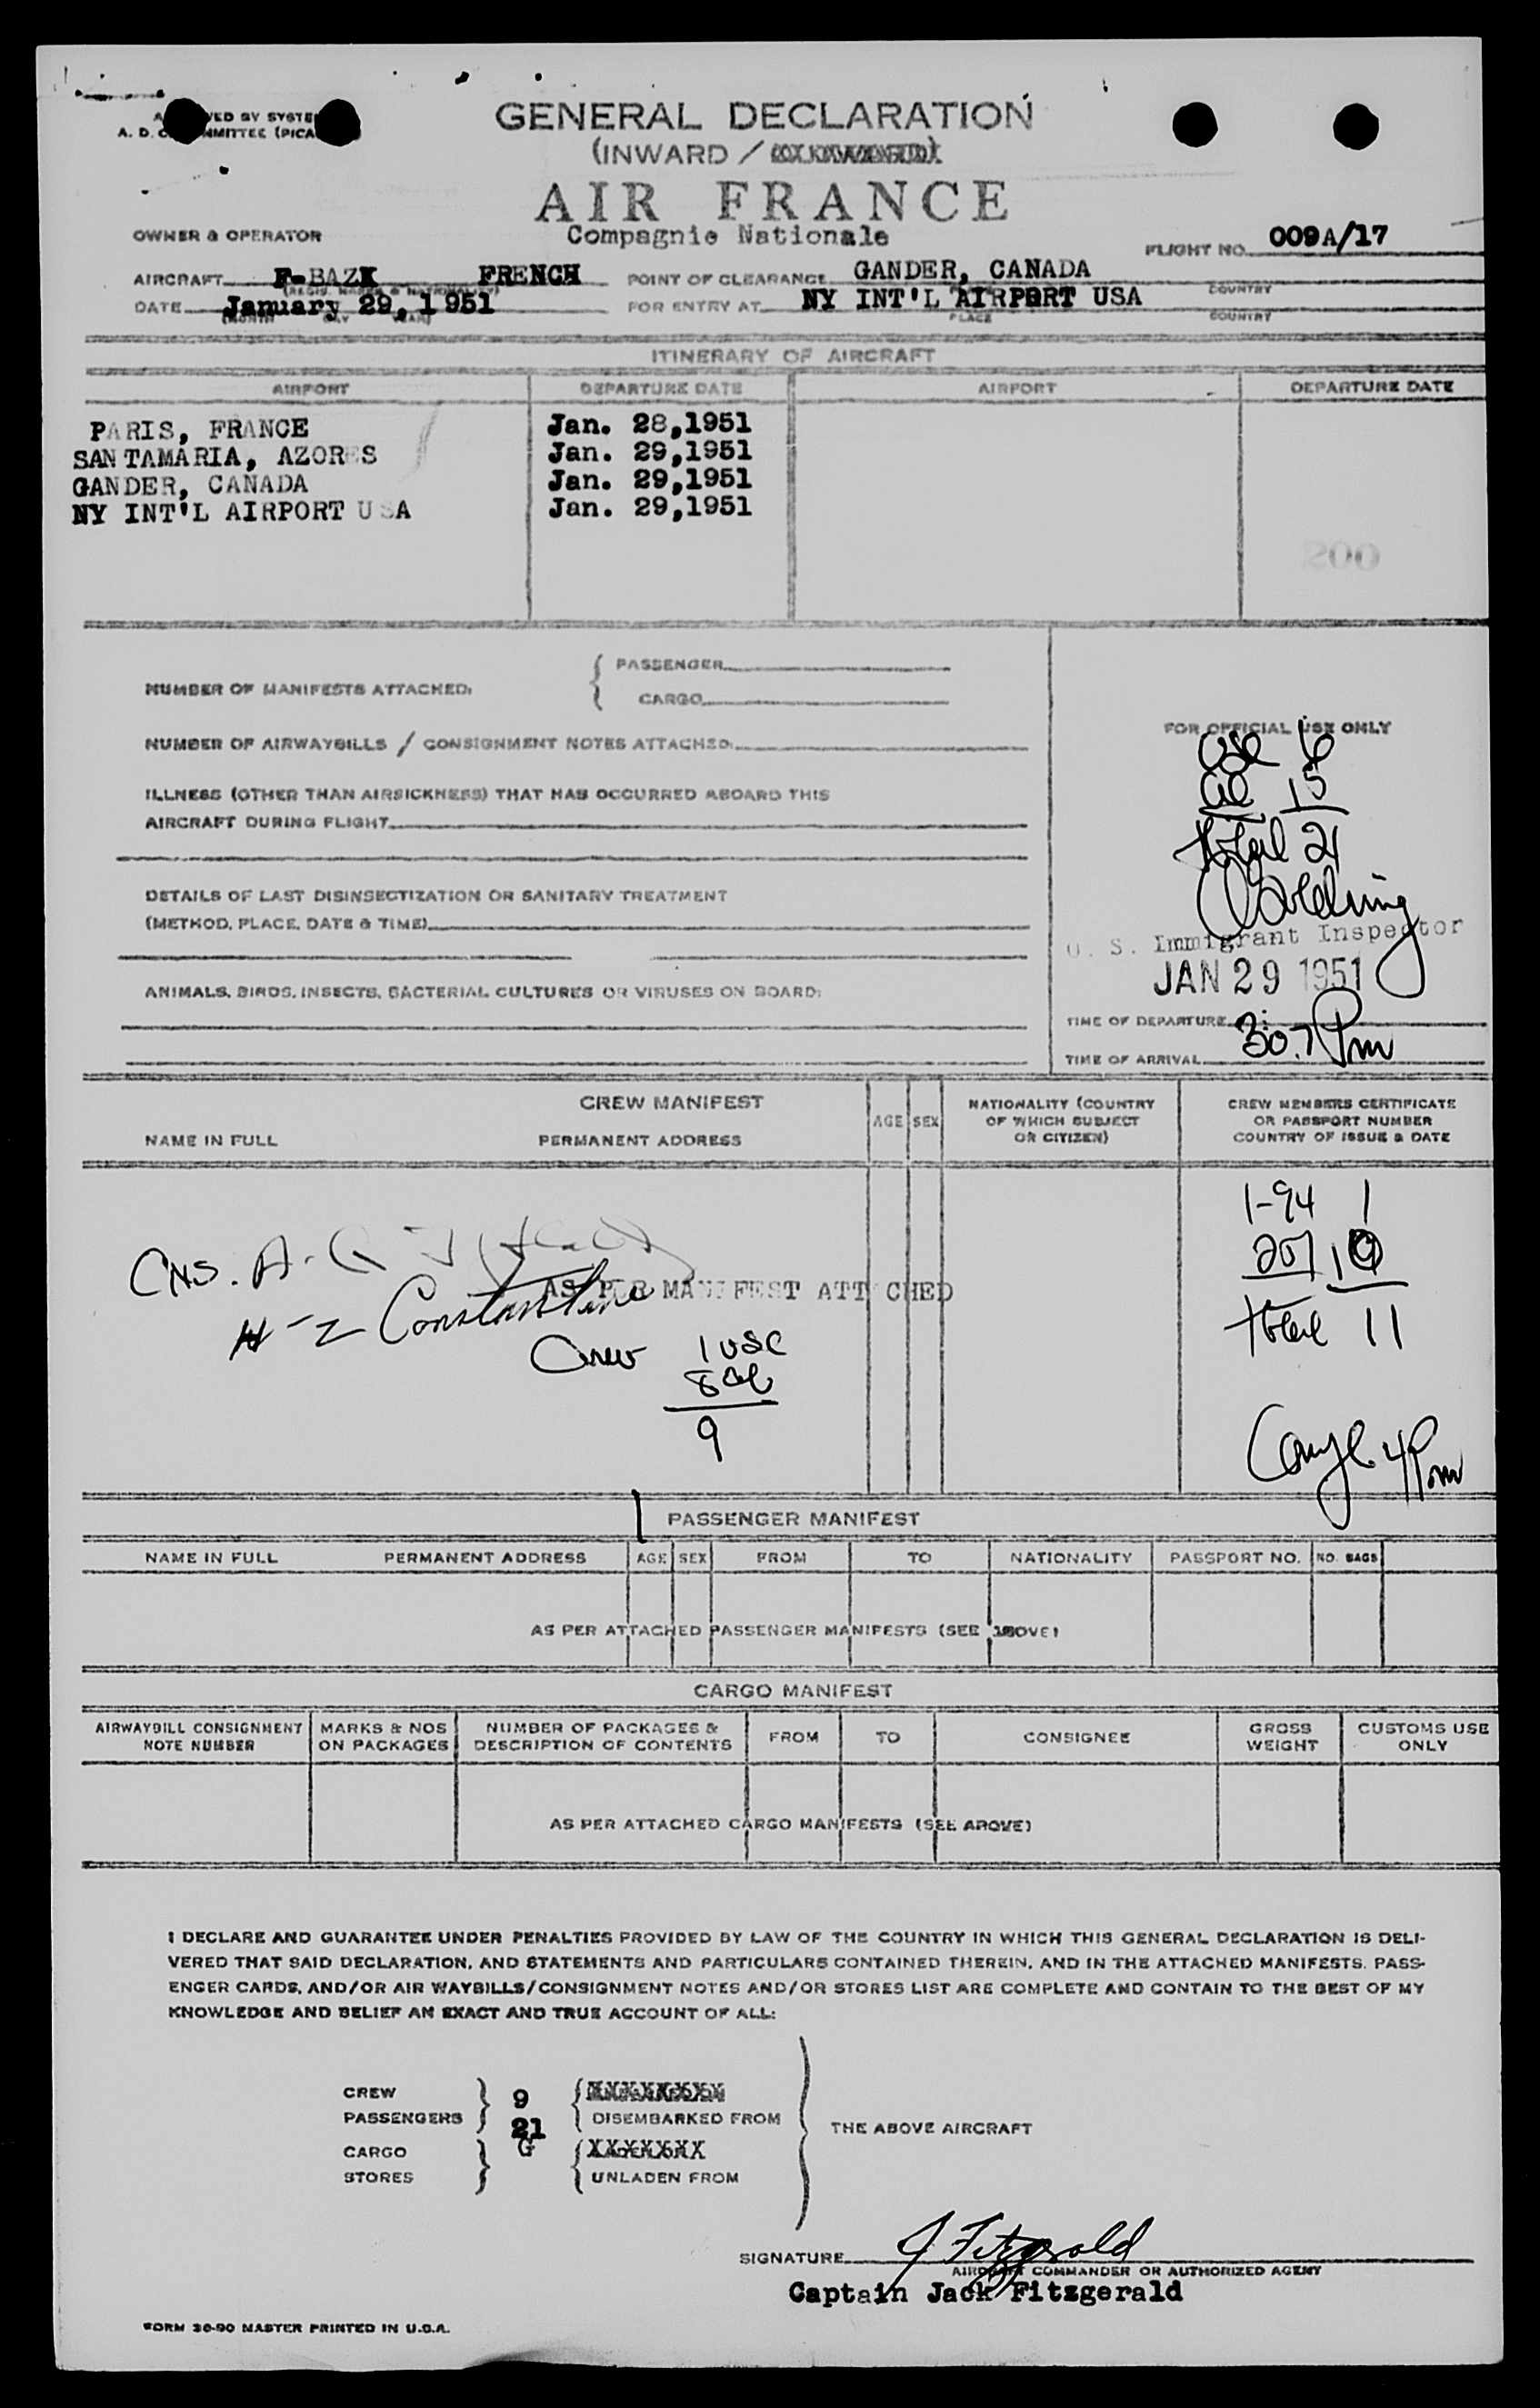 GENERAL DECLARATION
(INWARD /
A. D.
AIR FRANCE
Compagnie Nationale
OWNER & OPERATOR
FLIGHT NO. 009A/17
AIRCRAFT FRENCH
POINT OF CLEARANCE GANDER, CANADA
COUNTRY
DATE January 29, 1951
FOR ENTRY AT NY INT'L AIRPORT USA
PLACE COUNTRY
ITINERARY OF AIRCRAFT
AIRPORT DEPARTURE DATE AIRPORT DEPARTURE DATE
PARIS, FRANCE Jan. 28,1951
SANTAMARIA, AZORES Jan. 29,1951
GANDER, CANADA Jan. 29,1951
NY INT'L AIRPORT USA Jan. 29,1951
200
NUMBER OF MANIFESTS ATTACHED: { PASSENGER
CARGO
NUMBER OF AIRWAYBILLS / CONSIGNMENT NOTES ATTACHED:
ILLNESS (OTHER THAN AIRSICKNESS) THAT HAS OCCURRED ABOARD THIS
AIRCRAFT DURING FLIGHT
DETAILS OF LAST DISINSECTIZATION OR SANITARY TREATMENT
(METHOD, PLACE, DATE & TIME)
ANIMALS, BIRDS, INSECTS, BACTERIAL CULTURES OR VIRUSES ON BOARD:
FOR OFFICIAL USE ONLY
USC 6
al 15
total 21
U. S. Immigrant Inspector
JAN 29 1951
TIME OF DEPARTURE
TIME OF ARRIVAL 30.7 Pm
CREW MANIFEST
NAME IN FULL PERMANENT ADDRESS AGE SEX NATIONALITY (COUNTRY OF WHICH SUBJECT OR CITIZEN) CREW MEMBERS CERTIFICATE OR PASSPORT NUMBER COUNTRY OF ISSUE & DATE
AS PER MANIFEST ATTACHED
Constantine
Crew 1 USC
8 al
9
I-94 1
257 10
total 11
4 Pm
PASSENGER MANIFEST
NAME IN FULL PERMANENT ADDRESS AGE SEX FROM TO NATIONALITY PASSPORT NO. NO. BAGS
AS PER ATTACHED PASSENGER MANIFESTS (SEE ABOVE)
CARGO MANIFEST
AIRWAYBILL CONSIGNMENT NOTE NUMBER MARKS & NOS ON PACKAGES NUMBER OF PACKAGES & DESCRIPTION OF CONTENTS FROM TO CONSIGNEE GROSS WEIGHT CUSTOMS USE ONLY
AS PER ATTACHED CARGO MANIFESTS (SEE ABOVE)
I DECLARE AND GUARANTEE UNDER PENALTIES PROVIDED BY LAW OF THE COUNTRY IN WHICH THIS GENERAL DECLARATION IS DELI-
VERED THAT SAID DECLARATION, AND STATEMENTS AND PARTICULARS CONTAINED THEREIN, AND IN THE ATTACHED MANIFESTS, PASS-
ENGER CARDS, AND/OR AIR WAYBILLS/CONSIGNMENT NOTES AND/OR STORES LIST ARE COMPLETE AND CONTAIN TO THE BEST OF MY
KNOWLEDGE AND BELIEF AN EXACT AND TRUE ACCOUNT OF ALL:
CREW } 9 { XXXXXXXX
PASSENGERS 21 DISEMBARKED FROM
THE ABOVE AIRCRAFT
CARGO } G { XXXXXXX
STORES UNLADEN FROM
SIGNATURE J Fitzgerald
AIRCRAFT COMMANDER OR AUTHORIZED AGENT
Captain Jack Fitzgerald
FORM 30-90 MASTER PRINTED IN U.S.A.